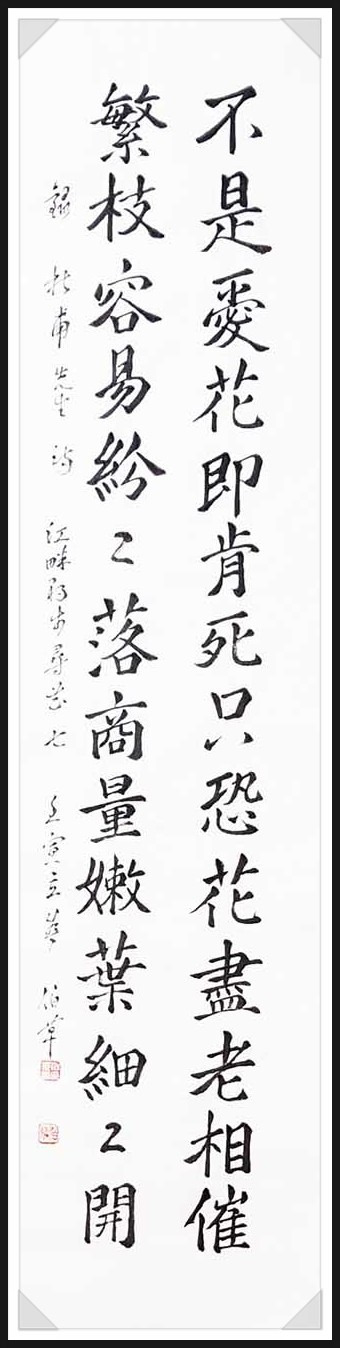 不是愛花即肯死只恐花盡老相催
繁枝容易紛〻落商量嫩葉細〻開
錄 杜甫先生詩 江畔獨步尋花七 壬寅立春